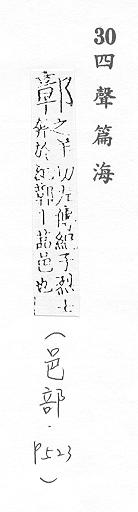 30 四聲篇海
鄣
之羊切左傳紀子
奔於紀鄣莒邑也
（邑部．P.523）